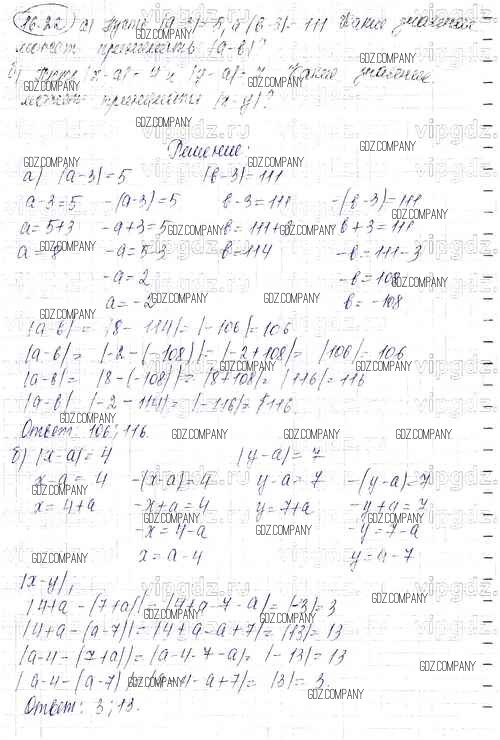 16.22 а) Пусть |а-3|=5, а |в-3|=111 Какие значения
может принимать |а-в|?
б) Пусть |x-a|=4 и |y-a|=7 Какие значение
может принимать |x-y|?
Решение:
а) |а-3|=5 |в-3|=111
а-3=5 -(а-3)=5 в-3=111 -(в-3)=111
а=5+3 -а+3=5 в=111+3 -в+3=111
а=8 -а=5-3 в=114 -в=111-3
-а=2 -в=108
а=-2 в=-108
|а-в|=|8-114|=|-106|=106
|а-в|=|-2-(-108)|=|-2+108|=|106|=106
|а-в|=|8-(-108)|=|8+108|=|116|=116
|а-в|=|-2-114|=|-116|=116.
Ответ: 106; 116.
б) |x-a|=4 |y-a|=7
x-a=4 -(x-a)=4 y-a=7 -(y-a)=7
x=4+a -x+a=4 y=7+a -y+a=7
-x=4-a -y=7-a
x=a-4 y=a-7
|x-y|;
|4+a-(7+a)|=|4+a-7-a|=|-3|=3
|4+a-(a-7)|=|4+a-a+7|=|13|=13
|a-4-(7+a)|=|a-4-7-a|=|-13|=13
|a-4-(a-7)|=|a-4-a+7|=|3|=3.
Ответ: 3; 13.
GDZ.COMPANY
vipgdz.ru